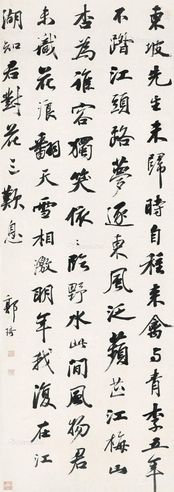 東坡先生未歸時自種來禽与青李五年
不踏江頭路夢逐東風泛蘋芷江梅山
杏為誰容獨笑依依臨野水此間風物君
未識花浪翻天雪相激明年我復在江
湖知君對花三歎息
郭